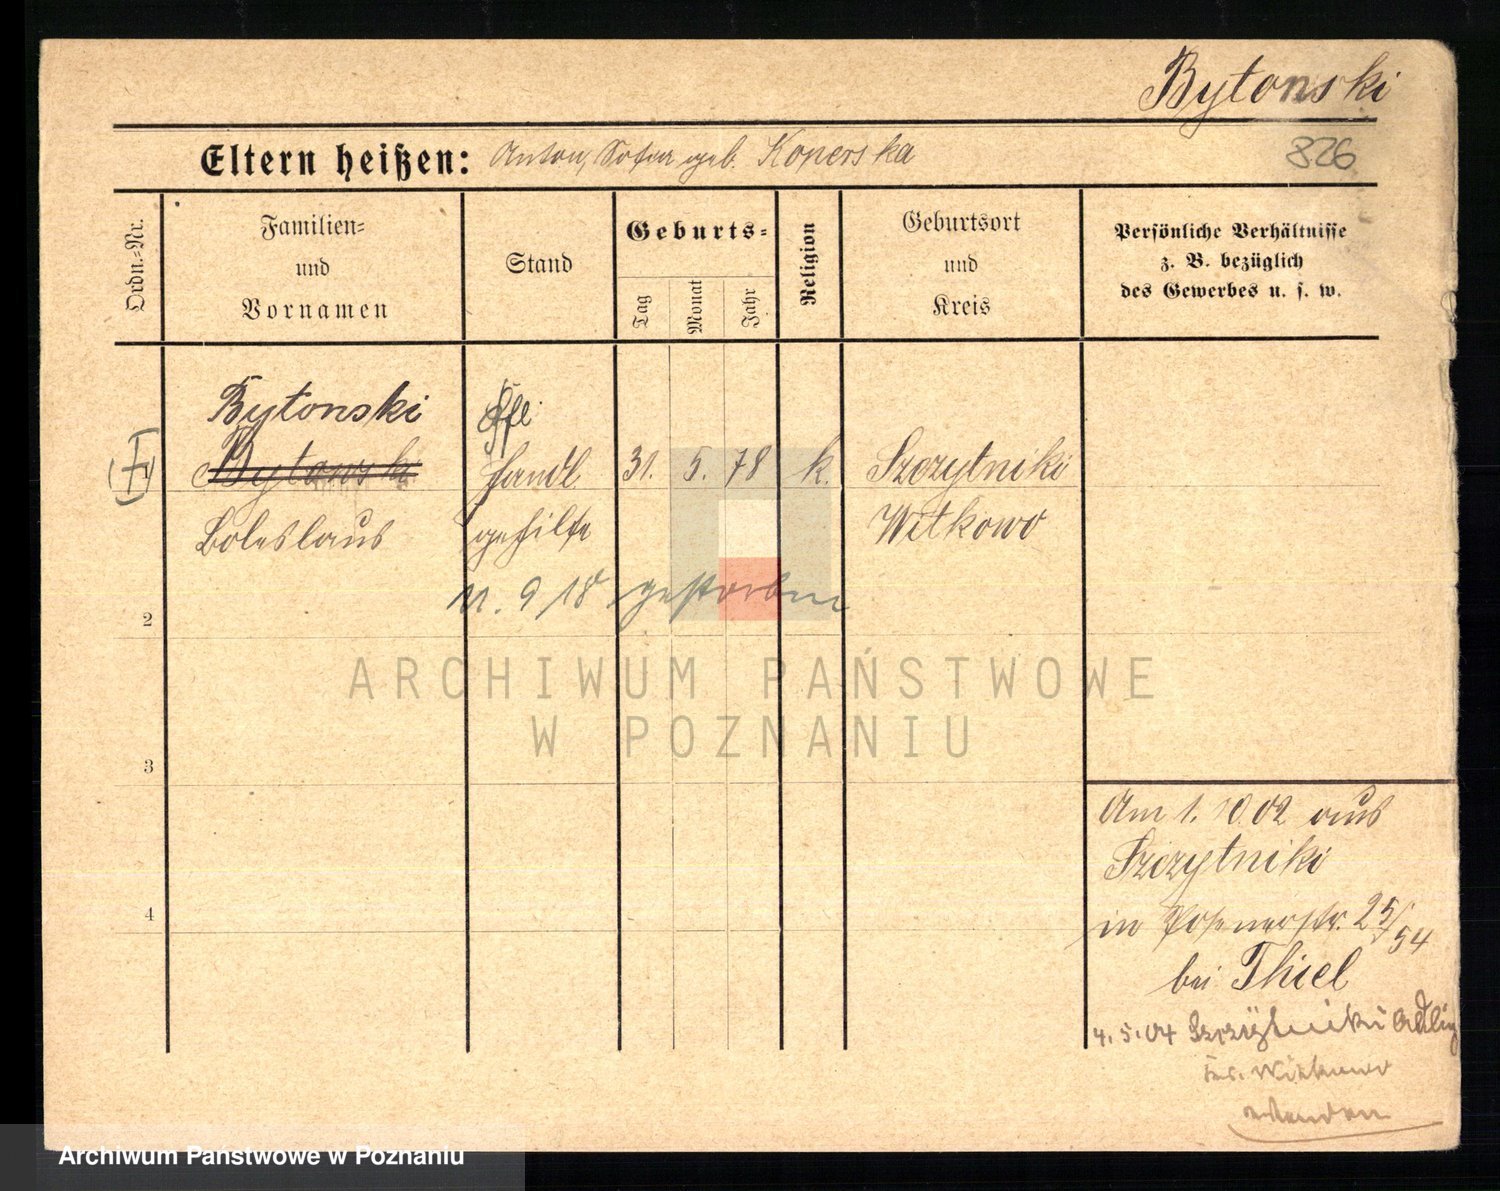 Bytonski
826
Eltern heißen: Anton, Sofia geb. Konerska
Ordn.-Nr.
Familien-
und
Vornamen
Stand
Geburts-
Tag
Monat
Jahr
Religion
Geburtsort
und
Kreis
Persönliche Verhältnisse
z. B. bezüglich
des Gewerbes u. s. w.
Bytonski
Bytowski Handl. 31. 5. 78 k. Szczytniki
Boleslaus gehilfe Witkowo
11. 9 18 gestorben
2
3
4
ARCHIWUM PAŃSTWOWE
W POZNANIU
Am 1. 10.02 aus
Szczytniki
in Posenerstr. 25/54
bei Thiel
4.5.04 Szczytniki
Witkowo
Archiwum Państwowe w Poznaniu